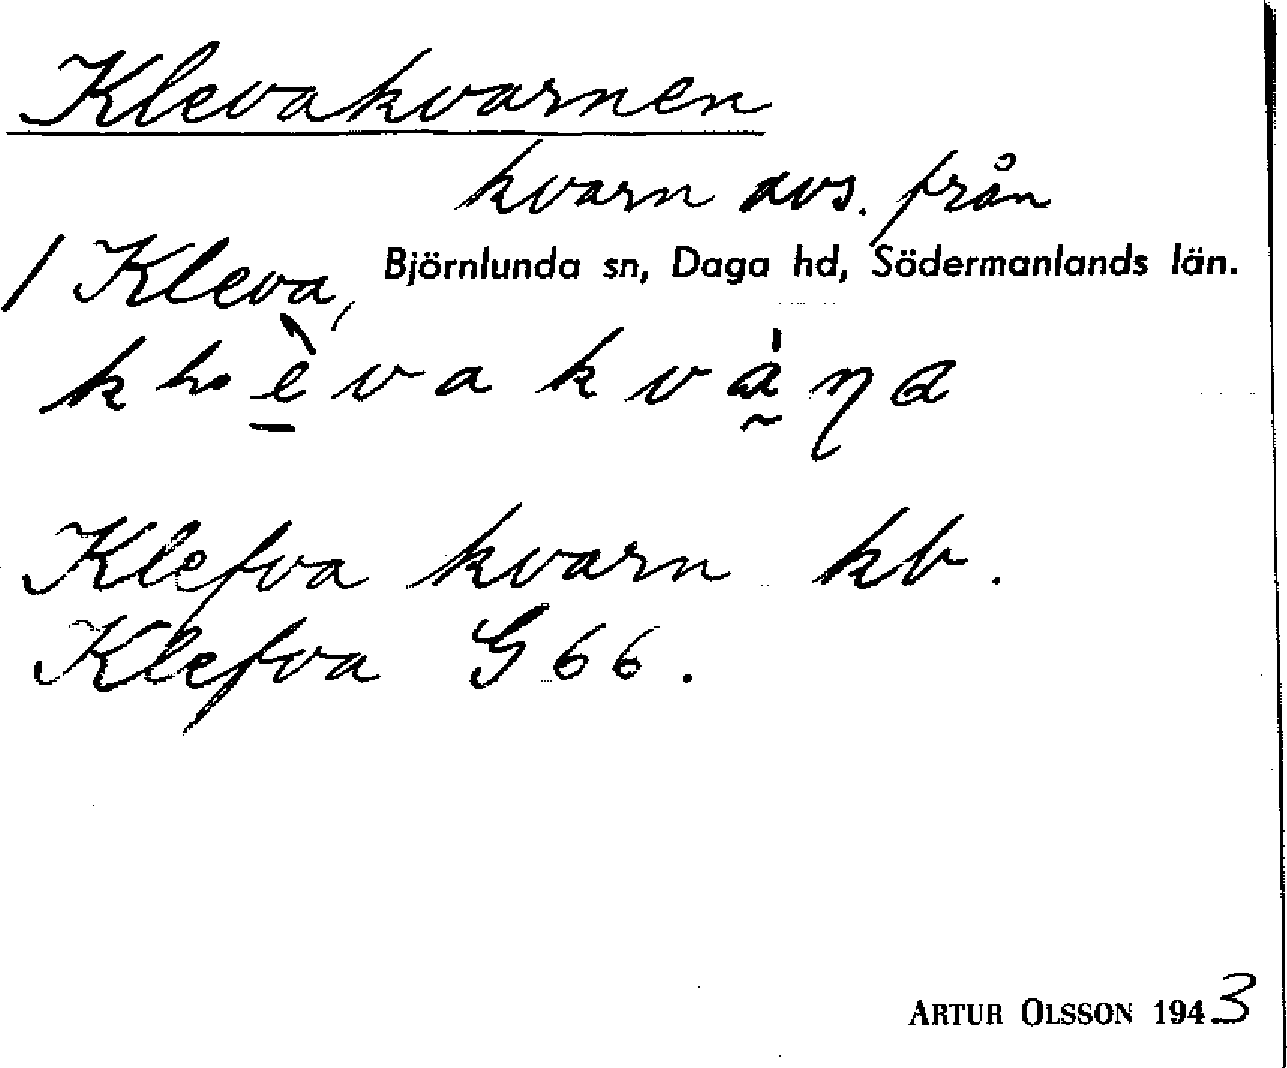 Klevakvarnen
kvarn avs. från
/ Kleva, Björnlunda sn, Daga hd, Södermanlands län.
Klefva kvarn kb.
Klefva G 66.
ARTUR OLSSON 1943